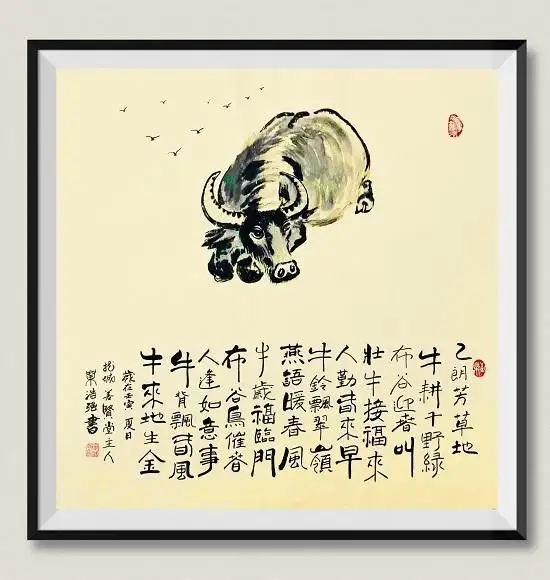 乙朗芳草地
牛耕千野緑
布谷迎春叫
壮牛接福來
人勤春來早
牛鈴飄翠嶺
燕語暖春風
牛歳福臨門
布谷鳥催春
人逢如意事
牛背飄春風
牛來地生金
歳在壬寅夏日
龍城善賢堂主人
栗浩强書